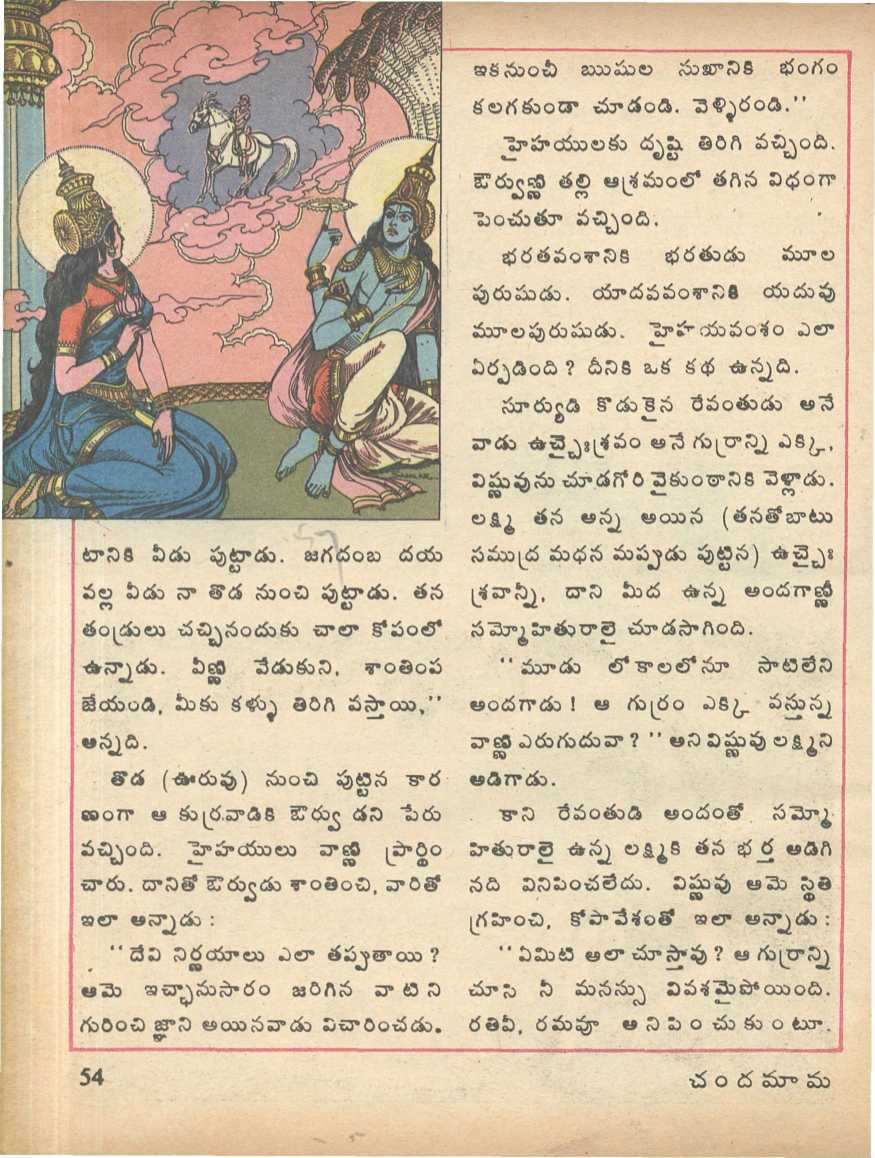 టానికి వీడు పుట్టాడు. జగదంబ దయ
వల్ల వీడు నా తొడ నుంచి పుట్టాడు. తన
తండ్రులు చచ్చినందుకు చాలా కోపంలో
ఉన్నాడు. వీణ్ణి వేడుకుని, శాంతింప
జేయండి, మీకు కళ్ళు తిరిగి వస్తాయి,''
అన్నది.
తొడ (ఊరువు) నుంచి పుట్టిన కార
ణంగా ఆ కుర్రవాడికి ఔర్వుడని పేరు
వచ్చింది. హైహయులు వాణ్ణి ప్రార్థిం
చారు. దానితో ఔర్వుడు శాంతించి, వారితో
ఇలా అన్నాడు :
''దేవి నిర్ణయాలు ఎలా తప్పుతాయి?
ఆమె ఇచ్ఛానుసారం జరిగిన వాటిని
గురించి జ్ఞాని అయినవాడు విచారించడు.
ఇకనుంచీ ఋషుల సుఖానికి భంగం
కలగకుండా చూడండి. వెళ్ళిరండి.''
హైహయులకు దృష్టి తిరిగి వచ్చింది.
ఔర్వుణ్ణి తల్లి ఆశ్రమంలో తగిన విధంగా
పెంచుతూ వచ్చింది.
భరతవంశానికి భరతుడు మూల
పురుషుడు. యాదవవంశానికి యదువు
మూలపురుషుడు. హైహయవంశం ఎలా
ఏర్పడింది? దీనికి ఒక కథ ఉన్నది.
సూర్యుడి కొడుకైన రేవంతుడు అనే
వాడు ఉచ్చైఃశ్రవం అనే గుర్రాన్ని ఎక్కి,
విష్ణువును చూడగోరి వైకుంఠానికి వెళ్లాడు.
లక్ష్మి తన అన్న అయిన (తనతోబాటు
సముద్ర మథన మప్పుడు పుట్టిన) ఉచ్చైః
శ్రవాన్నీ, దాని మీద ఉన్న అందగాణ్ణీ
సమ్మోహితురాలై చూడసాగింది.
''మూడు లోకాలలోనూ సాటిలేని
అందగాడు! ఆ గుర్రం ఎక్కి వస్తున్న
వాణ్ణి ఎరుగుదువా?'' అని విష్ణువు లక్ష్మిని
అడిగాడు.
కాని రేవంతుడి అందంతో సమ్మో
హితురాలై ఉన్న లక్ష్మికి తన భర్త అడిగి
నది వినిపించలేదు. విష్ణువు ఆమె స్థితి
గ్రహించి, కోపావేశంతో ఇలా అన్నాడు :
''ఏమిటి అలా చూస్తావు? ఆ గుర్రాన్ని
చూసి నీ మనస్సు వివశమైపోయింది.
రతివీ, రమవూ అనిపించుకుంటూ.
54
చందమామ